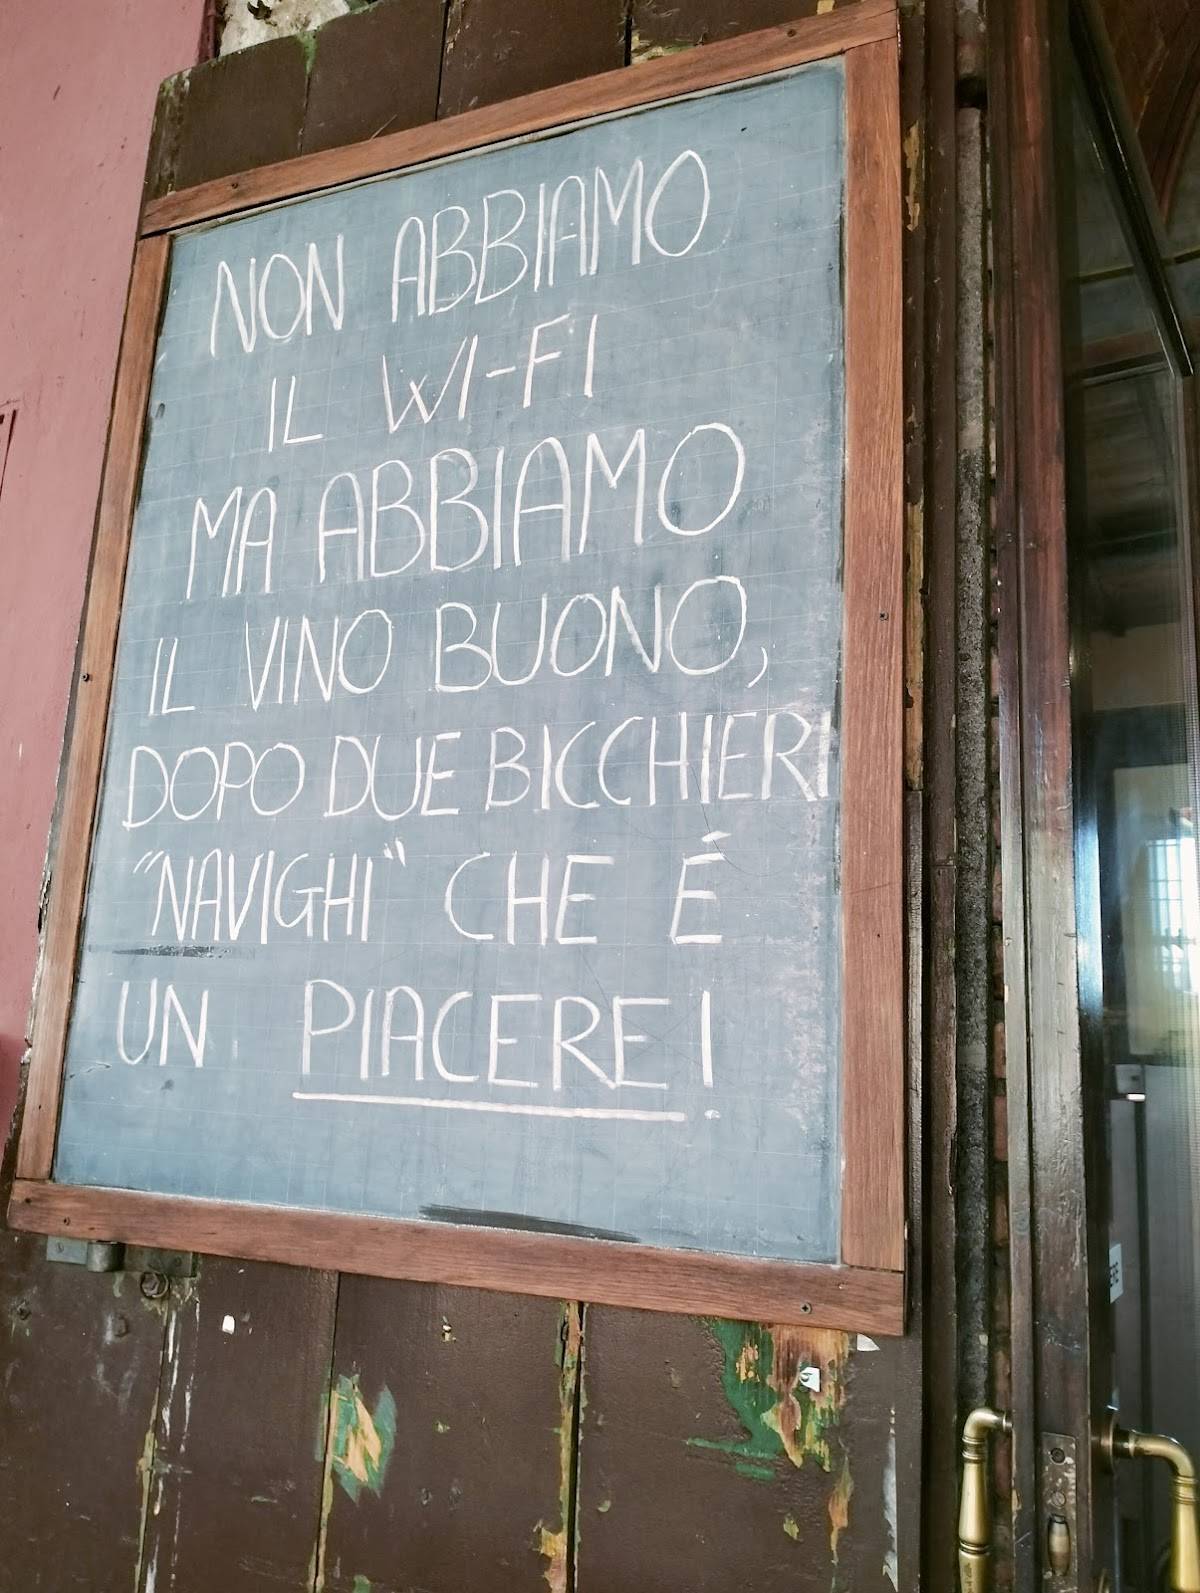 NON ABBIAMO
IL WI-FI
MA ABBIAMO
IL VINO BUONO,
DOPO DUE BICCHIERI
"NAVIGHI" CHE É
UN PIACERE!